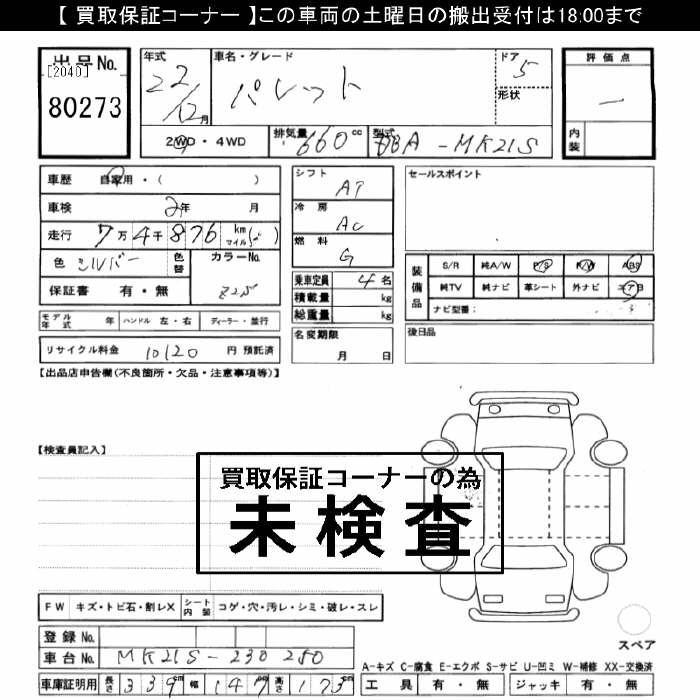 【 買取保証コーナー 】この車両の土曜日の搬出受付は18:00まで
出品No.
[2040]
80273
年式
22/12月
車名・グレード
パレット
ドア
5
形状
2WD・4WD
排気量
660cc
型式
DBA-MK21S
評価点
内装
車歴 自家用・( )
車検 2年 月
走行 7万4千876 km マイル
色 シルバー
色替
カラーNo.
Z2S
保証書 有・無
モデル年式 年 ハンドル 左・右 ディーラー・並行
リサイクル料金 10120 円 預託済
シフト
AT
冷房
AC
燃料
G
乗車定員 4名
積載量 kg
総重量 kg
名変期限
月 日
セールスポイント
装備品
S/R 純A/W P/S P/W ABS
純TV 純ナビ 革シート 外ナビ エアB
ナビ型番:
後日品
【出品店申告欄(不良箇所・欠品・注意事項等)】
【検査員記入】
買取保証コーナーの為
未検査
FW キズ・トビ石・割レX シート内装 コゲ・穴・汚レ・シミ・破レ・スレ
登録No.
車台No. MK21S-230250
車庫証明用 長さ 339cm 幅 147cm 高さ 173cm
スペア
A-キズ C-腐食 E-エクボ S-サビ U-凹ミ W-補修 XX-交換済
工具 有・無 ジャッキ 有・無